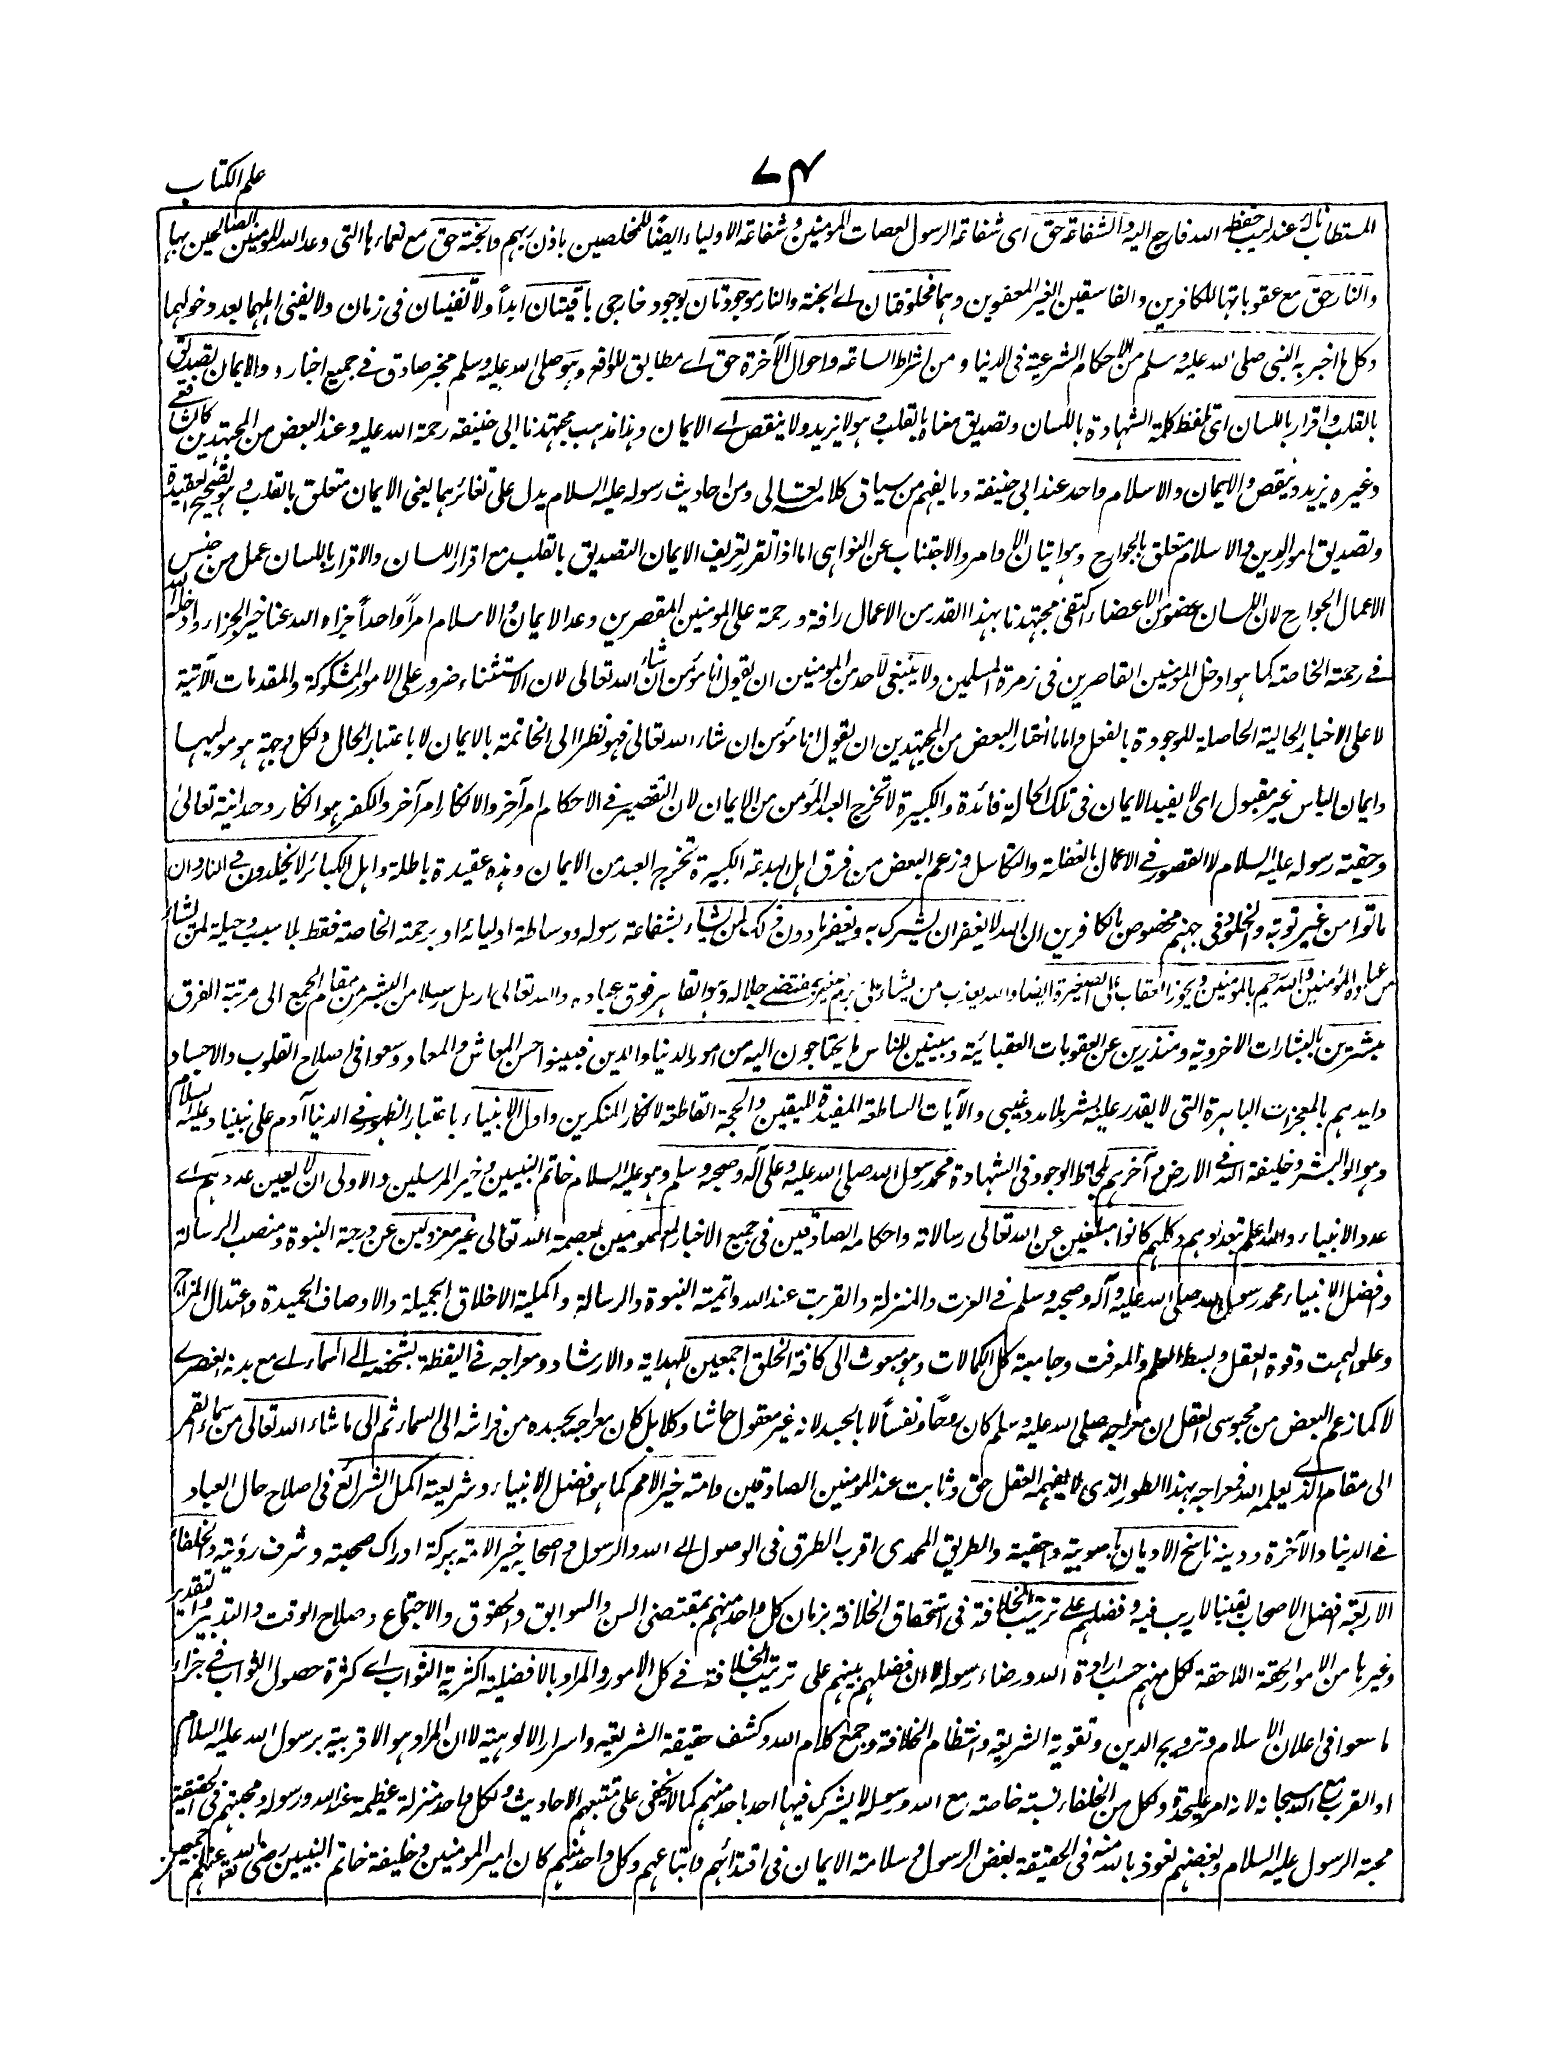 علم الکتاب
۷۴
المستطاب نالۂ عندلیب حفظہ اللہ فارجع الیہ والشفاعۃ حق ای شفاعۃ الرسول لعصات المومنین وشفاعۃ الاولیاء ایضاً للمخلصین باذن ربہم والجنۃ حق مع نعماء ہا التی وعد اللہ للمومنین الصالحین بہا
والنار حق مع عقوباتہا للکافرین والفاسقین الغیر المعفوین وہما مخلوقتان اے الجنۃ والنار موجودتان بوجود خارجی باقیتان ابداً ولا تفنیان فی زمان ولا یفنی اہلہما بعد دخولہما
وکل ما اخبر بہ النبی صلی اللہ علیہ وسلم من الاحکام الشرعیۃ فی الدنیا ومن اشراط الساعۃ واحوال الآخرۃ حق اے مطابق للواقع وہو صلی اللہ علیہ وسلم مخبر صادق فی جمیع اخبارہ والایمان تصدیق
بالقلب واقرار باللسان ای تلفظ کلمۃ الشہادۃ باللسان وتصدیق معناہ بالقلب وہو لا یزید ولا ینقص اے الایمان وہذا مذہب مجتہدنا ابی حنیفہ رحمۃ اللہ علیہ وعند البعض من المجتہدین کالشافعی
وغیرہ یزید وینقص والایمان والاسلام واحد عند ابی حنیفۃ وما یفہم من سیاق کلامہ تعالی ومن احادیث رسولہ علیہ السلام یدل علی تغائرہما یعنی الایمان متعلق بالقلب وہو تصحیح العقیدۃ
وتصدیق امور الدین والاسلام متعلق بالجوارح وہو اتیان الاوامر والاجتناب عن النواہی اما اذا تقرر تعریف الایمان التصدیق بالقلب مع اقرار اللسان والاقرار باللسان عمل من جنس
الاعمال الجوارح لان اللسان عضو من الاعضاء اکتفی مجتہدنا بہذا القدر من الاعمال رافۃ ورحمۃ علی المومنین المقصرین وعد الایمان والاسلام امراً واحداً جزاہ اللہ عنا خیر الجزاء وادخلہ اللہ
فے رحمتہ الخاصۃ کما ہو ادخل المومنین القاصرین فی زمرۃ المسلمین ولا ینبغی لاحد من المومنین ان یقول انا مؤمن ان شاء اللہ تعالی لان الاستثناء ضرور علی الامور المشکوکۃ والمقدمات الآتیۃ
لا علی الاخبار الحالیۃ الحاصلۃ للموجودۃ بالفعل واما ما اختار البعض من المجتہدین ان یقول انا مؤمن ان شاء اللہ تعالی فہو نظرا الی الخاتمۃ بالایمان لا باعتبار الحال ولکل وجہۃ ہو مولیہا
وایمان الیاس غیر مقبول ای لا یفید الایمان فی تلک الحالۃ فائدۃ والکبیرۃ لا تخرج العبد المؤمن من الایمان لان التقصیر فے الاحکام امر آخر والانکار امر آخر والکفر ہو انکار وحدانیۃ تعالیٰ
وحقیۃ رسولہ علیہ السلام لا القصور فی الاعمال بالغفلۃ والتکاسل وزعم البعض من فرق اہل البدعۃ الکبیرۃ تخرج العبد من الایمان وہذہ عقیدۃ باطلۃ واہل الکبائر لا یخلدون فے النار وان
ماتوا من غیر توبۃ والخلود فی جہنم مخصوص بالکافرین ان اللہ لا یغفر ان یشرک بہ ویغفر ما دون ذلک لمن یشاء بشفاعۃ رسولہ ووساطۃ اولیائہ او برحمتہ الخاصۃ فقط بلا سبب وحیلۃ لمن یشاء
من عبادہ المؤمنین واللہ رحیم بالمومنین ویجوز العقاب علی الصغیرۃ ایضا واللہ یعذب من یشاء علی جرم صغیر بمقتضے جلالہ وہو القاہر فوق عبادہ واللہ تعالی ارسل رسلا من البشر من مقام الجمع الی مرتبۃ الفرق
مبشرین بالبشارات الاخرویۃ ومنذرین عن العقوبات العقبائیۃ ومبینین للناس ما یحتاجون الیہ من امور الدنیا والدین فبینوا احسن المعاش والمعاد وسعوا فی اصلاح القلوب والاجساد
وایدہم بالمعجزات الباہرۃ التی لا یقدر علیہ بشر بلا مدد غیبی والآیات الساطعۃ المفیدۃ للیقین والحجۃ القاطعۃ لانکار المنکرین واول الانبیاء باعتبار الظہور فے الدنیا آدم علی نبینا وعلیہ السلام
وہو ابو البشر وخلیفۃ اللہ فی الارض وآخرہم بلحاظ الوجود فی الشہادۃ محمد رسول اللہ صلی اللہ علیہ وعلی آلہ وصحبہ وسلم وہو علیہ السلام خاتم النبیین وخیر المرسلین والاولی ان لا یعین عددہم اے
عدد الانبیاء واللہ اعلم بتعدادہم وکلہم کانوا مبلغین عن اللہ تعالی رسالاتہ واحکامہ الصادقین فی جمیع الاخبار المعصومین بعصمۃ اللہ تعالی غیر معزولین عن درجۃ النبوۃ ومنصب الرسالۃ
وافضل الانبیاء محمد رسول اللہ صلی اللہ علیہ وآلہ وصحبہ وسلم فی العزت والمنزلۃ والقربۃ عند اللہ واتمیۃ النبوۃ والرسالۃ واکملیۃ الاخلاق الجمیلۃ والاوصاف الحمیدۃ واعتدال المزاج
وعلو الہمت وقوۃ العقل وبسط العلم والمعرفت وجامعیۃ کل الکمالات وہو مبعوث الی کافۃ الخلق اجمعین للہدایۃ والارشاد ومعراجہ فے الیقظۃ بشخصہ الی السماء اے مع بدنہ العنصرے
لا کما زعم البعض من محبوسی العقل ان معراجہ صلی اللہ علیہ وسلم کان روحاً ونفساً لا بالجسد لانہ غیر معقول حاشا وکلا بل کان معراجہ بجسدہ من فراشہ الی السماء ثم الی ما شاء اللہ تعالی من سماء القمر
الی مقام الذے یعلمہ اللہ فمعراجہ بہذا الطور الذی لا یفہمہ العقل حق وثابت عند المومنین الصادقین وامتہ خیر الامم کما ہو افضل الانبیاء وشریعتہ اکمل الشرائع فی اصلاح حال العباد
فے الدنیا والآخرۃ ودینہ ناسخ الادیان واحقیۃ والطریق المحمدی اقرب الطرق فی الوصول الی اللہ والرسول واصحابہ خیر الامۃ ببرکۃ ادراک صحبتہ وشرف رؤیتہ والخلفاء
الاربعۃ افضل الاصحاب یقینا لا ریب فیہ وفضلہم علی ترتیب الخلافۃ فی استحقاق الخلافۃ بزمان کل واحد منہم بمقتضی السن والسوابق والحقوق والاجتماع وصلاح الوقت والتدبیرات لتقدیر
وغیرہا من الامور الحقۃ اللاحقۃ لکل منہم حسب ارادۃ اللہ ورضاء رسولہ لا ان فضلہم بینہم علی ترتیب الخلافۃ فے کل الامور والمراد بالافضلیۃ اکثریۃ الثواب اے کثرۃ حصول الثواب فے جزاء
ما سعوا فی اعلان الاسلام وترویج الدین وتقویۃ الشریعۃ وانتظام الخلافۃ وجمع کلام اللہ وکشف حقیقۃ الشریعۃ واسرار الالوہیۃ لا ان المراد ہو الاقربیۃ برسول اللہ علیہ السلام
او القرب مع اللہ سبحانہ لانہ امر علیحدۃ ولکل من الخلفاء نسبۃ خاصۃ مع اللہ ورسولہ لا یشرک فیہا احد باحد منہم کما لا یخفی علی متتبعی الاحادیث ولکل واحد منزلۃ عظیمۃ عند اللہ ورسولہ ومحبتہم فی الحقیقۃ
محبۃ الرسول علیہ السلام وبغضہم نعوذ باللہ منہ فی الحقیقۃ بغض الرسول وسلامۃ الایمان فی اقتدائہم واتباعہم وکل واحد منہم کان امیر المومنین وخلیفۃ خاتم النبیین رضی اللہ عنہم اجمعین